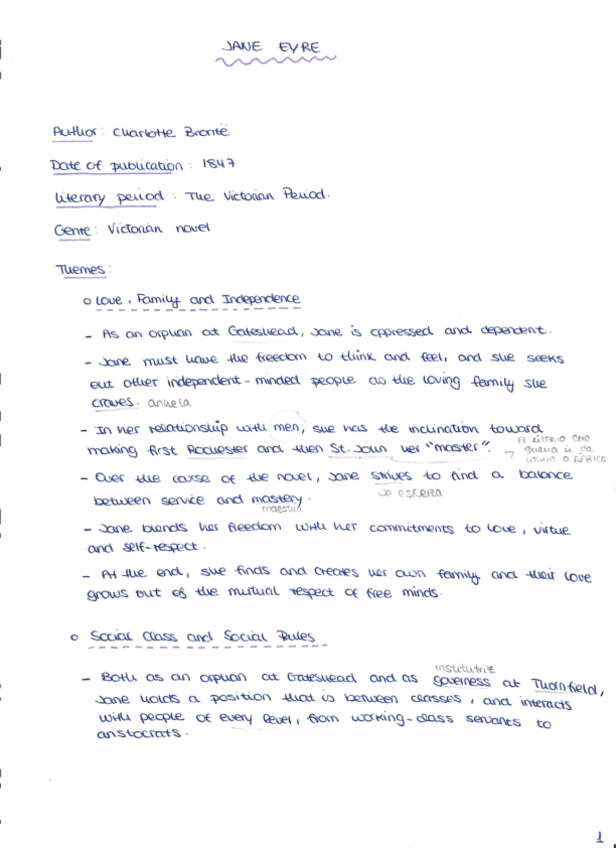 JANE EYRE
Author: Charlotte Brontë
Date of publication: 1847
Literary period: The Victorian Period.
Genre: Victorian novel
Themes:
o Love, Family and Independence
- As an orphan at Gateshead, Jane is oppressed and dependent.
- Jane must have the freedom to think and feel, and she seeks
out other independent-minded people as the loving family she
craves. anhela
- In her relationship with men, she has the inclination toward
making first Rochester and then St. John her "master".
El último
quería
a ÁFRICA
- Over the course of the novel, Jane strives to find a balance
se esfuerza
between service and mastery.
maestría
- Jane blends her freedom with her commitments to love, virtue
and self-respect.
- At the end, she finds and creates her own family and their love
grows out of the mutual respect of free minds.
o Social Class and Social Rules
institutriz
- Both as an orphan at Gateshead and as governess at Thornfield,
Jane holds a position that is between classes, and interacts
with people of every level, from working-class servants to
aristocrats.
1